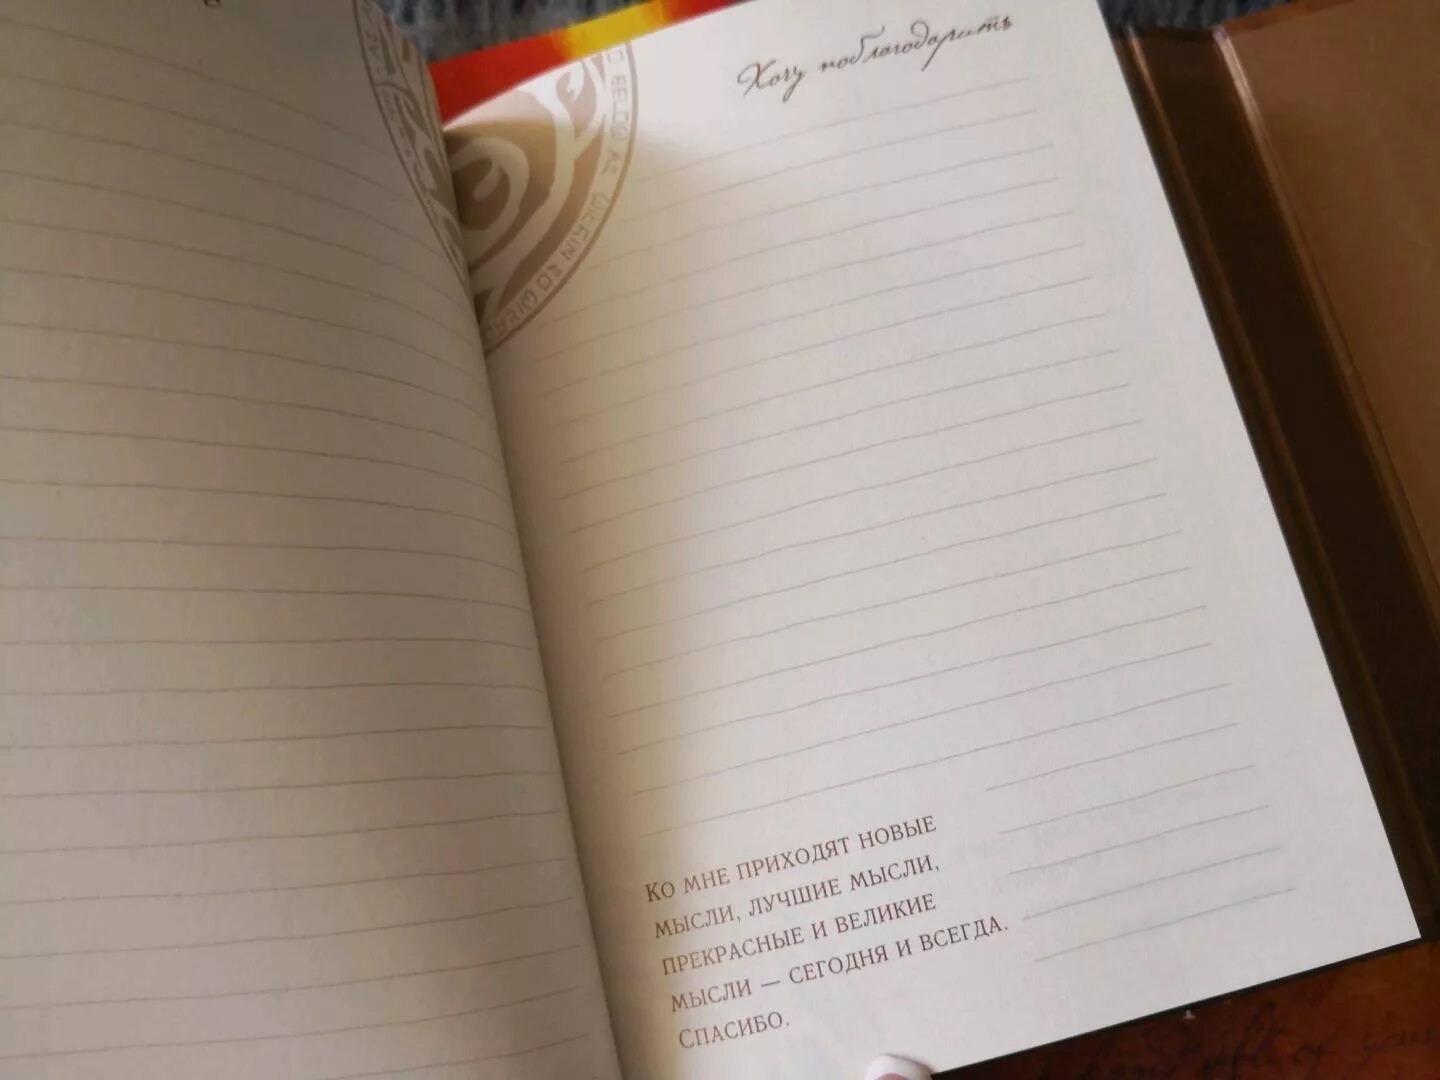 Хочу поблагодарить
Ко мне приходят новые
мысли, лучшие мысли,
прекрасные и великие
мысли — сегодня и всегда.
Спасибо.